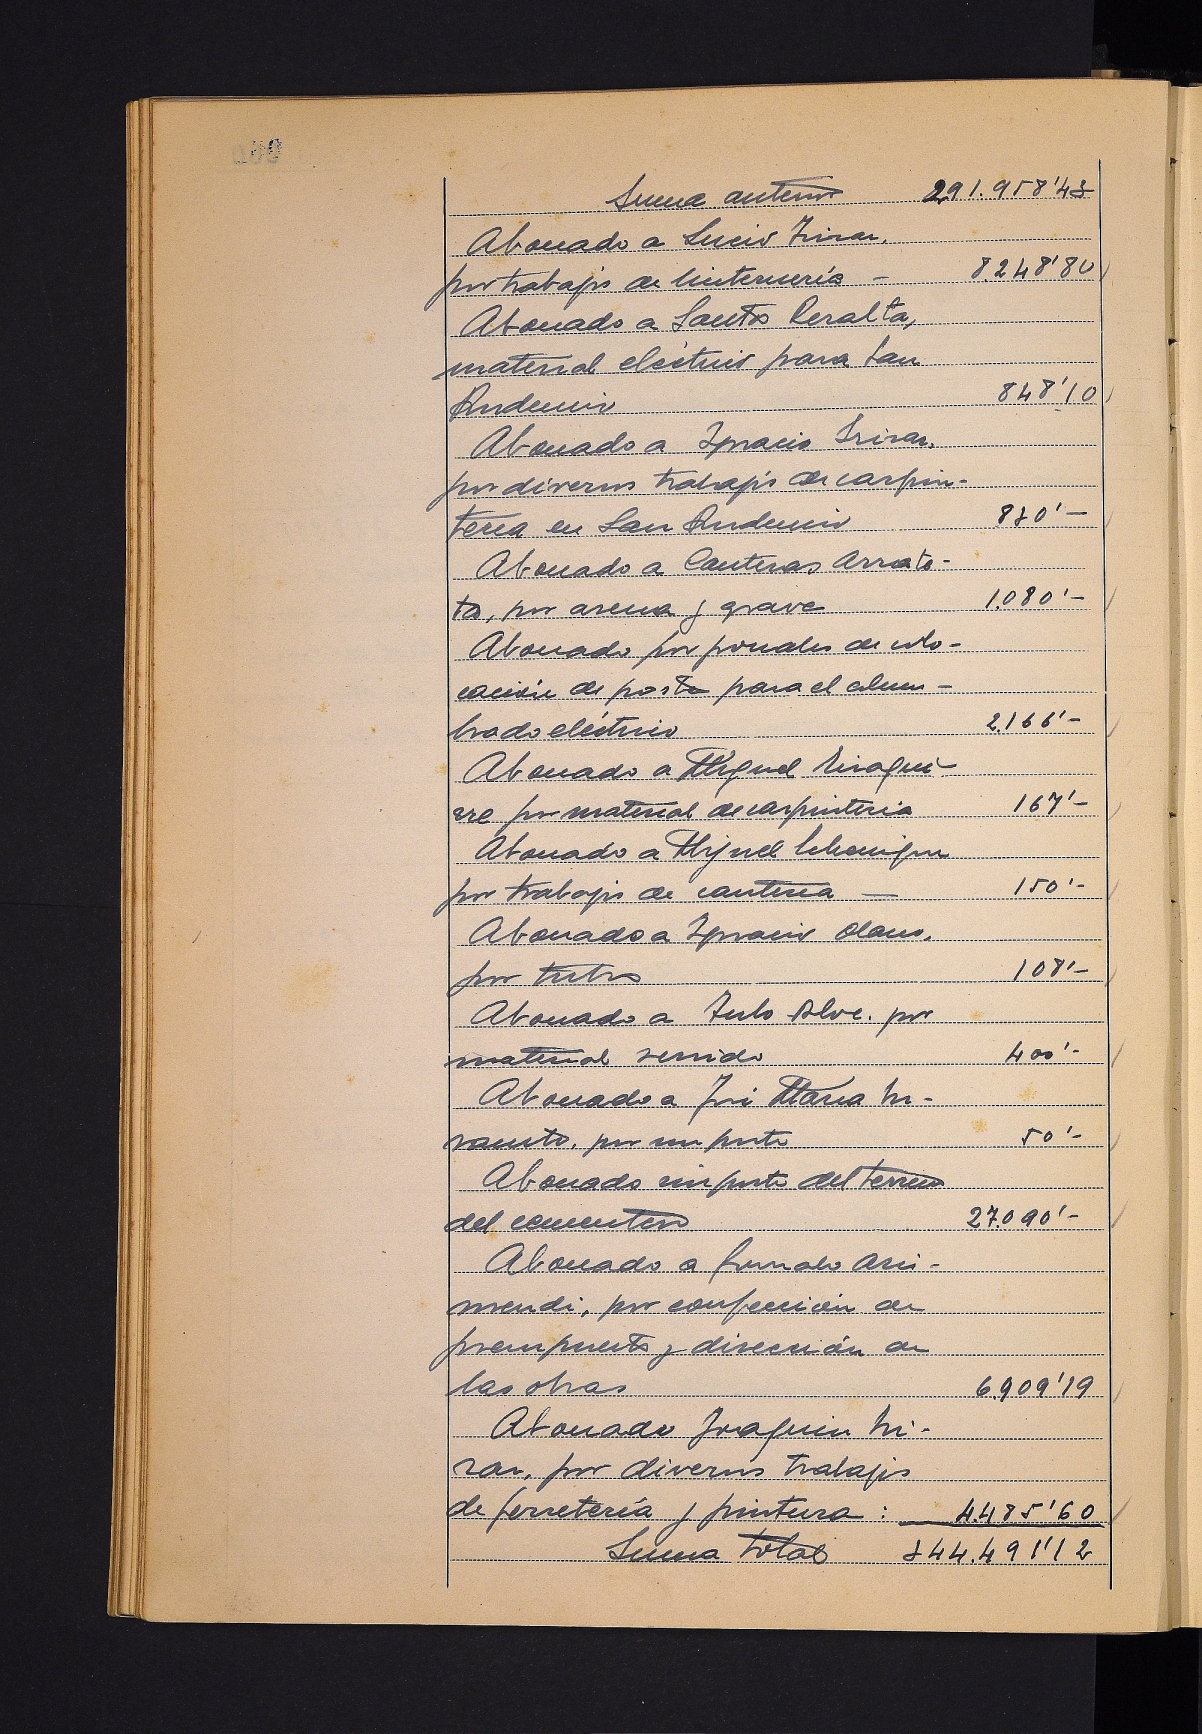 Suma anterior 291.958'43
Abonado a Lucio Irizar,
por trabajos de linternería — 8.248'80
Abonado a Santos Peralta,
material eléctrico para San
Andrenio 848'10
Abonado a Ignacio Irizar,
por diversos trabajos de carpin-
tería en San Andrenio 830'—
Abonado a Canteras Arrate-
ta, por arena y grava 1.080'—
Abonado por jornales de colo-
cación de poste para el alum-
brado eléctrico 2.166'—
Abonado a Miguel
rre por material de carpintería 167'—
Abonado a Miguel
por trabajos de cantería — 150'—
Abonado a Ignacio
por tubos 108'—
Abonado a por
material servido 400'—
Abonado a José María
por un porte 50'—
Abonado importe del terreno
del cementerio 27.090'—
Abonado a Gonzalo Ariz-
mendi, por confección de
presupuesto y dirección de
las obras 6.909'19
Abonado Joaquin Iri-
zar, por diversos trabajos
de ferretería y pintura: 4.485'60
Suma total 344.491'12